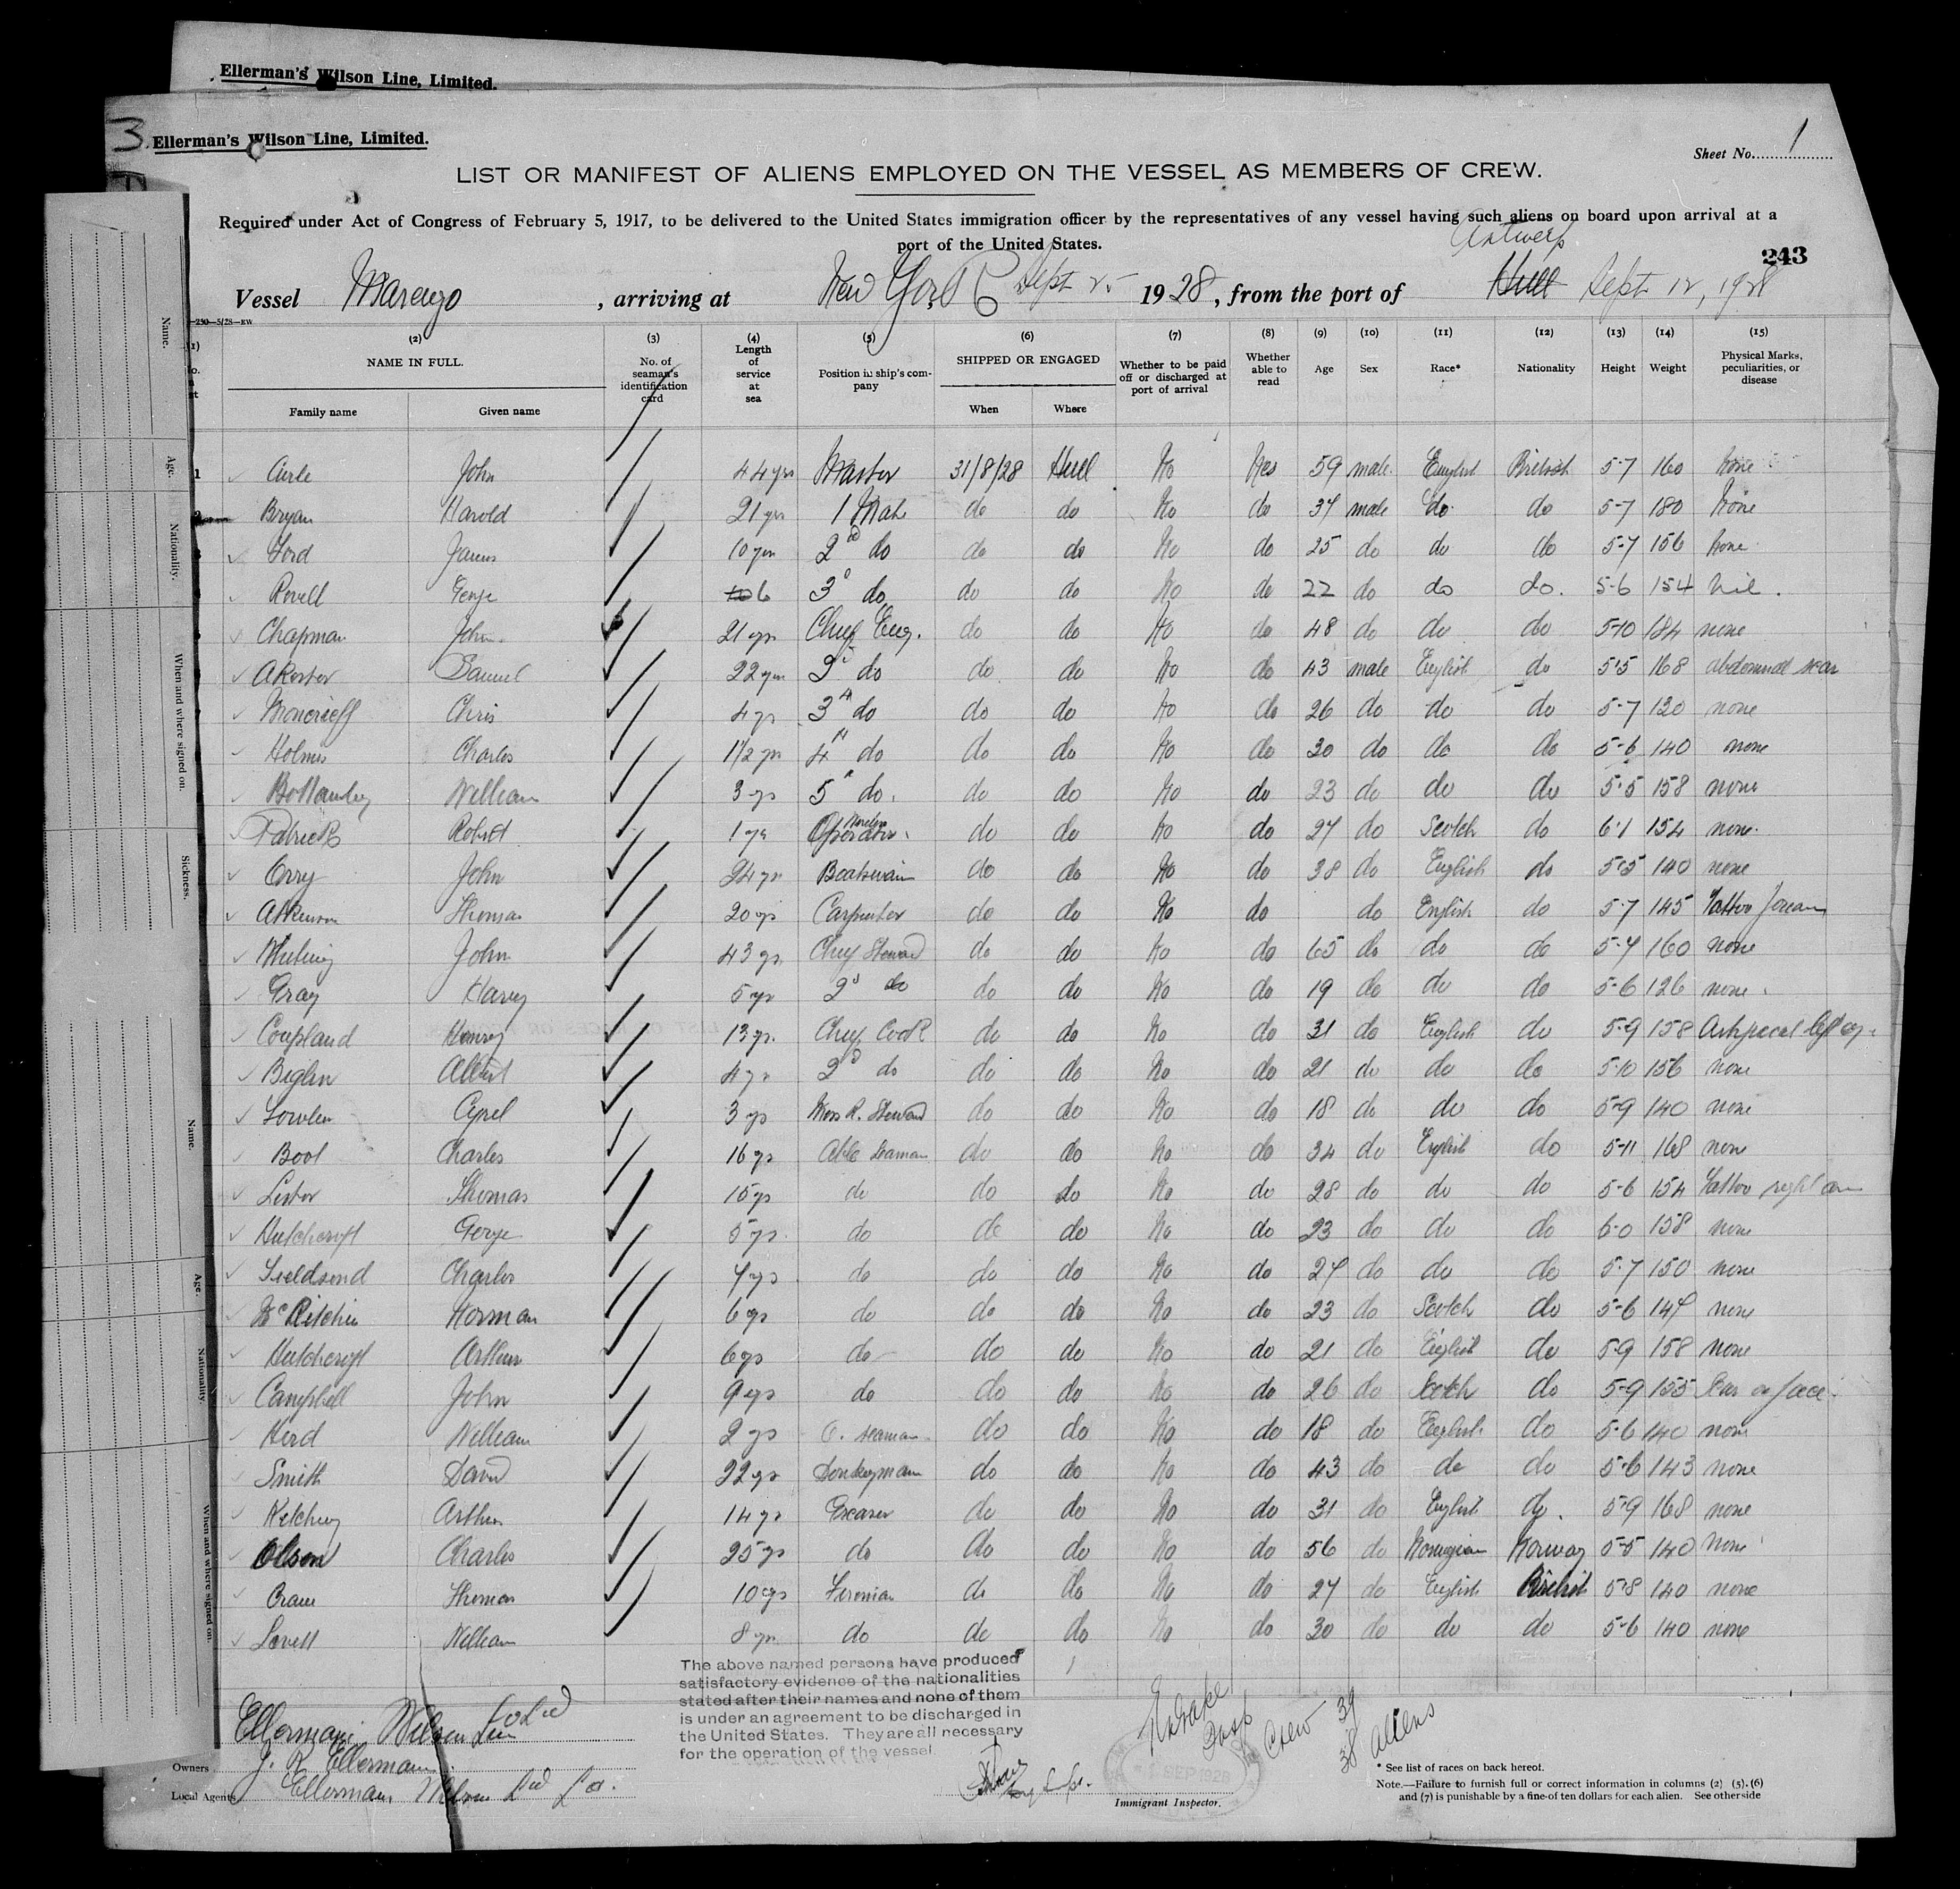 Ellerman's Wilson Line, Limited.
3. Ellerman's Wilson Line, Limited.
Sheet No. 1
LIST OR MANIFEST OF ALIENS EMPLOYED ON THE VESSEL AS MEMBERS OF CREW.
Required under Act of Congress of February 5, 1917, to be delivered to the United States immigration officer by the representatives of any vessel having such aliens on board upon arrival at a
port of the United States.
Antwerp
243
Vessel Marengo, arriving at New York Sept 25 1928, from the port of Hull Sept 12, 1928
(2) (3) (4) (5) (6) (7) (8) (9) (10) (11) (12) (13) (14) (15)
NAME IN FULL. No. of seaman's identification card Length of service at sea Position in ship's company SHIPPED OR ENGAGED Whether to be paid off or discharged at port of arrival Whether able to read Age Sex Race* Nationality Height Weight Physical Marks, peculiarities, or disease
Family name Given name When Where
1 John 44 yrs Master 31/8/28 Hull No Yes 59 male English British 5-7 160 None
Bryan Harold 21 yrs 1 Mate do do No do 37 male do do 5-7 180 None
Ford James 10 yrs 2nd do do do No do 25 do do do 5-7 156 None
Rovell George 6 3d do do do No do 22 do do do. 5-6 154 Nil.
Chapman John 21 yrs Chief Eng. do do No do 48 do do do 5-10 184 none
Akester Samuel 22 yrs 2d do do do No do 43 male English do 5-5 168 abdominal scar
Moncrieff Chris 4 yrs 3rd do do do No do 26 do do do 5-7 120 none
Holmes Charles 1 1/2 yrs 4th do do do No do 30 do do do 5-6 140 none
William 3 yrs 5th do. do do No do 23 do do do 5-5 158 none
Patrick Robert 1 yr Wireless Operator do do No do 27 do Scotch do 6-1 154 none.
Orry John 24 yrs Boatswain do do No do 38 do English do 5-5 140 none
Atkinson Thomas 20 yrs Carpenter do do No do do English do 5-7 145 Tattoo forearm
John 43 yrs Chief Steward do do No do 65 do do do 5-7 160 none
Gray Harry 5 yrs 2d do do do No do 19 do do do 5-6 126 none
Coupland Henry 13 yrs. Chief Cook do do No do 31 do English do 5-9 158 left eye
Beglin Albert 4 yrs 2d do do do No do 21 do do do 5-10 156 none
Cyril 3 yrs Mess R. Steward do do No do 18 do do do 5-9 140 none
Boot Charles 16 yrs Able Seaman do do No do 34 do English do 5-11 168 none
Lister Thomas 15 yrs do do do No do 28 do do do 5-6 154 Tattoo right arm
Hutchcroft George 5 yrs. do do do No do 23 do do do 6-0 158 none
Fieldsend Charles 7 yrs do do do No do 27 do do do 5-7 150 none
McRitchie Norman 6 yrs do do do No do 23 do Scotch do 5-6 147 none
Hutchcroft Arthur 6 yrs do do do No do 21 do English do 5-9 158 none
Campbell John 9 yrs do do do No do 26 do Scotch do 5-9 155 Scar on face
Herd William 2 yrs O. seaman do do No do 18 do English do 5-6 140 none
Smith David 22 yrs Donkeyman do do No do 43 do do do 5-6 143 none
Arthur 14 yrs Greaser do do No do 31 do English do. 5-9 168 none
Olson Charles 25 yrs do do do No do 56 do Norwegian Norway 5-5 140 None
Crane Thomas 10 yrs Fireman do do No do 27 do English British 5-8 140 none
Lovell William 8 yrs do do do No do 30 do do do 5-6 140 none
The above named persons have produced
satisfactory evidence of the nationalities
stated after their names and none of them
is under an agreement to be discharged in
the United States. They are all necessary
for the operation of the vessel.
Crew 39
38 aliens
Ellermans Wilson Line Co Ld
Owners J. R. Ellerman.
Local Agents Ellermans Wilson
Immigrant Inspector.
* See list of races on back hereof.
Note.—Failure to furnish full or correct information in columns (2) (5), (6)
and (7) is punishable by a fine of ten dollars for each alien. See other side
Name.
Age.
Nationality.
When and where signed on.
Sickness.
Name.
Age.
Nationality.
When and where signed on.